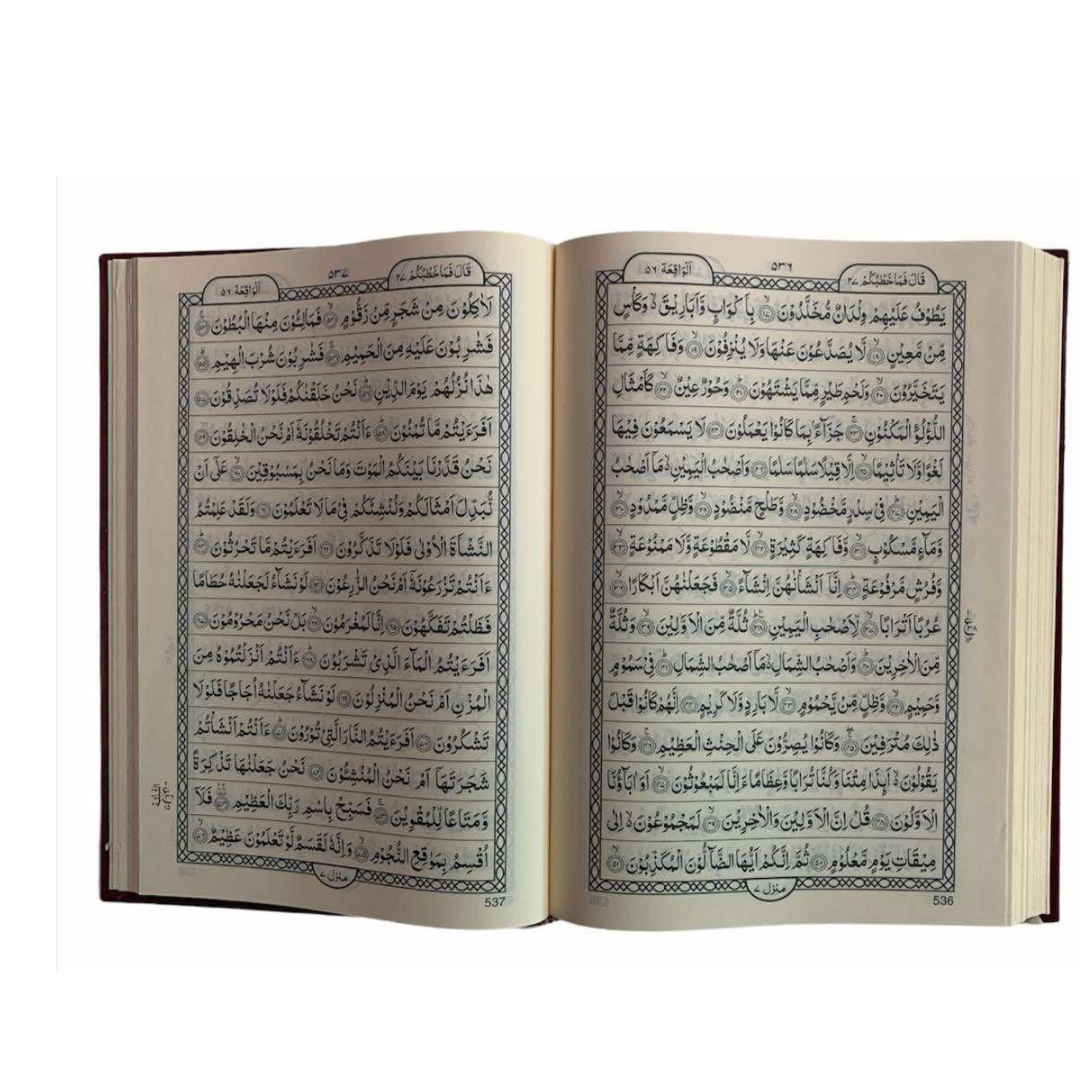 قَالَ فَمَا خَطْبُكُمْ ٢٧
٥٣٦
اَلْوَاقِعَة ٥٦
يَطُوْفُ عَلَيْهِمْ وِلْدَانٌ مُّخَلَّدُوْنَ ﴿١٧﴾ بِاَكْوَابٍ وَّاَبَارِيْقَ ۙ وَكَاْسٍ
مِّنْ مَّعِيْنٍ ﴿١٨﴾ لَّا يُصَدَّعُوْنَ عَنْهَا وَلَا يُنْزِفُوْنَ ﴿١٩﴾ وَفَاكِهَةٍ مِّمَّا
يَتَخَيَّرُوْنَ ﴿٢٠﴾ وَلَحْمِ طَيْرٍ مِّمَّا يَشْتَهُوْنَ ﴿٢١﴾ وَحُوْرٌ عِيْنٌ ﴿٢٢﴾ كَاَمْثَالِ
اللُّؤْلُؤِ الْمَكْنُوْنِ ﴿٢٣﴾ جَزَآءًۢ بِمَا كَانُوْا يَعْمَلُوْنَ ﴿٢٤﴾ لَا يَسْمَعُوْنَ فِيْهَا
لَغْوًا وَّلَا تَاْثِيْمًا ﴿٢٥﴾ اِلَّا قِيْلًا سَلٰمًا سَلٰمًا ﴿٢٦﴾ وَاَصْحٰبُ الْيَمِيْنِ ۙ مَاۤ اَصْحٰبُ
الْيَمِيْنِ ﴿٢٧﴾ فِيْ سِدْرٍ مَّخْضُوْدٍ ﴿٢٨﴾ وَّطَلْحٍ مَّنْضُوْدٍ ﴿٢٩﴾ وَّظِلٍّ مَّمْدُوْدٍ ﴿٣٠﴾
وَّمَآءٍ مَّسْكُوْبٍ ﴿٣١﴾ وَّفَاكِهَةٍ كَثِيْرَةٍ ﴿٣٢﴾ لَّا مَقْطُوْعَةٍ وَّلَا مَمْنُوْعَةٍ ﴿٣٣﴾
وَّفُرُشٍ مَّرْفُوْعَةٍ ﴿٣٤﴾ اِنَّاۤ اَنْشَاْنٰهُنَّ اِنْشَآءً ﴿٣٥﴾ فَجَعَلْنٰهُنَّ اَبْكَارًا ﴿٣٦﴾
عُرُبًا اَتْرَابًا ﴿٣٧﴾ لِّاَصْحٰبِ الْيَمِيْنِ ﴿٣٨﴾ ثُلَّةٌ مِّنَ الْاَوَّلِيْنَ ﴿٣٩﴾ وَثُلَّةٌ
مِّنَ الْاٰخِرِيْنَ ﴿٤٠﴾ وَاَصْحٰبُ الشِّمَالِ ۙ مَاۤ اَصْحٰبُ الشِّمَالِ ﴿٤١﴾ فِيْ سَمُوْمٍ
وَّحَمِيْمٍ ﴿٤٢﴾ وَّظِلٍّ مِّنْ يَّحْمُوْمٍ ﴿٤٣﴾ لَّا بَارِدٍ وَّلَا كَرِيْمٍ ﴿٤٤﴾ اِنَّهُمْ كَانُوْا قَبْلَ
ذٰلِكَ مُتْرَفِيْنَ ﴿٤٥﴾ وَكَانُوْا يُصِرُّوْنَ عَلَى الْحِنْثِ الْعَظِيْمِ ﴿٤٦﴾ وَكَانُوْا
يَقُوْلُوْنَ ۙ اَئِذَا مِتْنَا وَكُنَّا تُرَابًا وَّعِظَامًا ءَاِنَّا لَمَبْعُوْثُوْنَ ﴿٤٧﴾ اَوَاٰبَآؤُنَا
الْاَوَّلُوْنَ ﴿٤٨﴾ قُلْ اِنَّ الْاَوَّلِيْنَ وَالْاٰخِرِيْنَ ﴿٤٩﴾ لَمَجْمُوْعُوْنَ ۙ اِلٰى
مِيْقَاتِ يَوْمٍ مَّعْلُوْمٍ ﴿٥٠﴾ ثُمَّ اِنَّكُمْ اَيُّهَا الضَّآلُّوْنَ الْمُكَذِّبُوْنَ ﴿٥١﴾
منزل ٧
536
قَالَ فَمَا خَطْبُكُمْ ٢٧
٥٣٧
اَلْوَاقِعَة ٥٦
لَاٰكِلُوْنَ مِنْ شَجَرٍ مِّنْ زَقُّوْمٍ ﴿٥٢﴾ فَمَالِئُوْنَ مِنْهَا الْبُطُوْنَ ﴿٥٣﴾
فَشٰرِبُوْنَ عَلَيْهِ مِنَ الْحَمِيْمِ ﴿٥٤﴾ فَشٰرِبُوْنَ شُرْبَ الْهِيْمِ ﴿٥٥﴾
هٰذَا نُزُلُهُمْ يَوْمَ الدِّيْنِ ﴿٥٦﴾ نَحْنُ خَلَقْنٰكُمْ فَلَوْلَا تُصَدِّقُوْنَ ﴿٥٧﴾
اَفَرَءَيْتُمْ مَّا تُمْنُوْنَ ﴿٥٨﴾ ءَاَنْتُمْ تَخْلُقُوْنَهٗۤ اَمْ نَحْنُ الْخٰلِقُوْنَ ﴿٥٩﴾
نَحْنُ قَدَّرْنَا بَيْنَكُمُ الْمَوْتَ وَمَا نَحْنُ بِمَسْبُوْقِيْنَ ﴿٦٠﴾ عَلٰۤى اَنْ
نُّبَدِّلَ اَمْثَالَكُمْ وَنُنْشِئَكُمْ فِيْ مَا لَا تَعْلَمُوْنَ ﴿٦١﴾ وَلَقَدْ عَلِمْتُمُ
النَّشْاَةَ الْاُوْلٰى فَلَوْلَا تَذَكَّرُوْنَ ﴿٦٢﴾ اَفَرَءَيْتُمْ مَّا تَحْرُثُوْنَ ﴿٦٣﴾
ءَاَنْتُمْ تَزْرَعُوْنَهٗۤ اَمْ نَحْنُ الزّٰرِعُوْنَ ﴿٦٤﴾ لَوْ نَشَآءُ لَجَعَلْنٰهُ حُطَامًا
فَظَلْتُمْ تَفَكَّهُوْنَ ﴿٦٥﴾ اِنَّا لَمُغْرَمُوْنَ ﴿٦٦﴾ بَلْ نَحْنُ مَحْرُوْمُوْنَ ﴿٦٧﴾
اَفَرَءَيْتُمُ الْمَآءَ الَّذِيْ تَشْرَبُوْنَ ﴿٦٨﴾ ءَاَنْتُمْ اَنْزَلْتُمُوْهُ مِنَ
الْمُزْنِ اَمْ نَحْنُ الْمُنْزِلُوْنَ ﴿٦٩﴾ لَوْ نَشَآءُ جَعَلْنٰهُ اُجَاجًا فَلَوْلَا
تَشْكُرُوْنَ ﴿٧٠﴾ اَفَرَءَيْتُمُ النَّارَ الَّتِيْ تُوْرُوْنَ ﴿٧١﴾ ءَاَنْتُمْ اَنْشَاْتُمْ
شَجَرَتَهَاۤ اَمْ نَحْنُ الْمُنْشِئُوْنَ ﴿٧٢﴾ نَحْنُ جَعَلْنٰهَا تَذْكِرَةً
وَّمَتَاعًا لِّلْمُقْوِيْنَ ﴿٧٣﴾ فَسَبِّحْ بِاسْمِ رَبِّكَ الْعَظِيْمِ ﴿٧٤﴾ فَلَاۤ
اُقْسِمُ بِمَوٰقِعِ النُّجُوْمِ ﴿٧٥﴾ وَاِنَّهٗ لَقَسَمٌ لَّوْ تَعْلَمُوْنَ عَظِيْمٌ ﴿٧٦﴾
منزل ٧
537